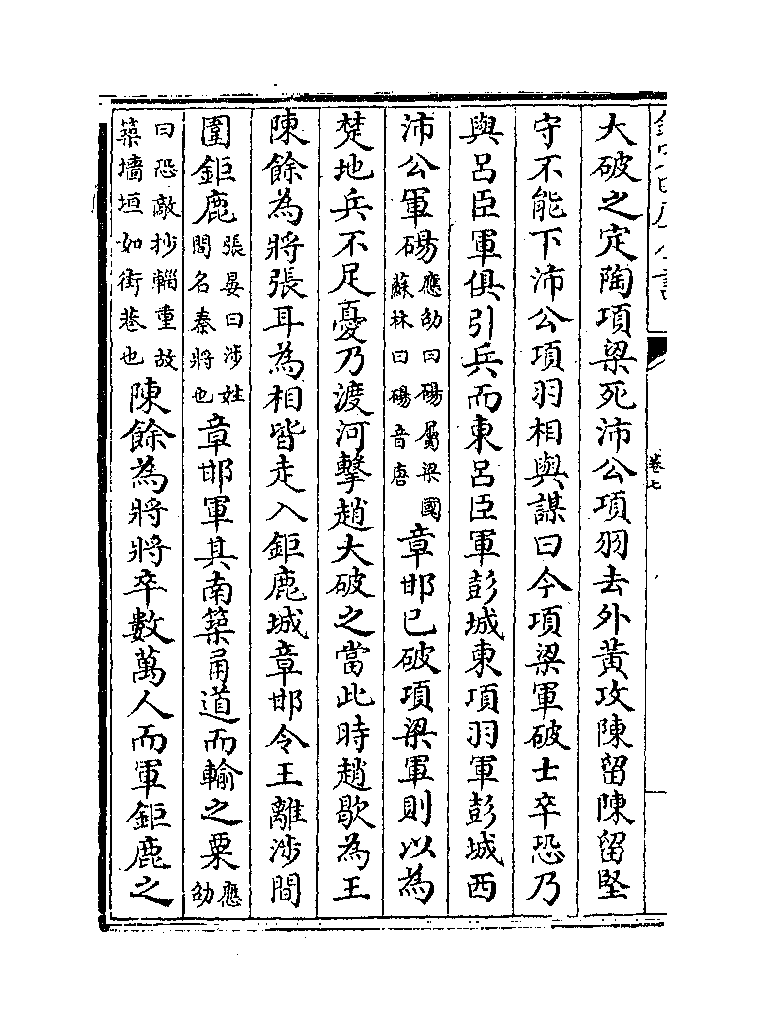 大破之定陶項梁死沛公項羽去外黃攻陳留陳留堅
守不能下沛公項羽相與謀曰今項梁軍破士卒恐乃
與呂臣軍俱引兵而東呂臣軍彭城東項羽軍彭城西
沛公軍碭應劭曰碭屬梁國蘇林曰碭音唐章邯已破項梁軍則以為
楚地兵不足憂乃渡河擊趙大破之當此時趙歇為王
陳餘為將張耳為相皆走入鉅鹿城章邯令王離涉間
圍鉅鹿張晏曰涉姓間名秦將也章邯軍其南築甬道而輸之粟應劭
曰恐敵抄輜重故築墻垣如街巷也陳餘為將將卒數萬人而軍鉅鹿之
卷七